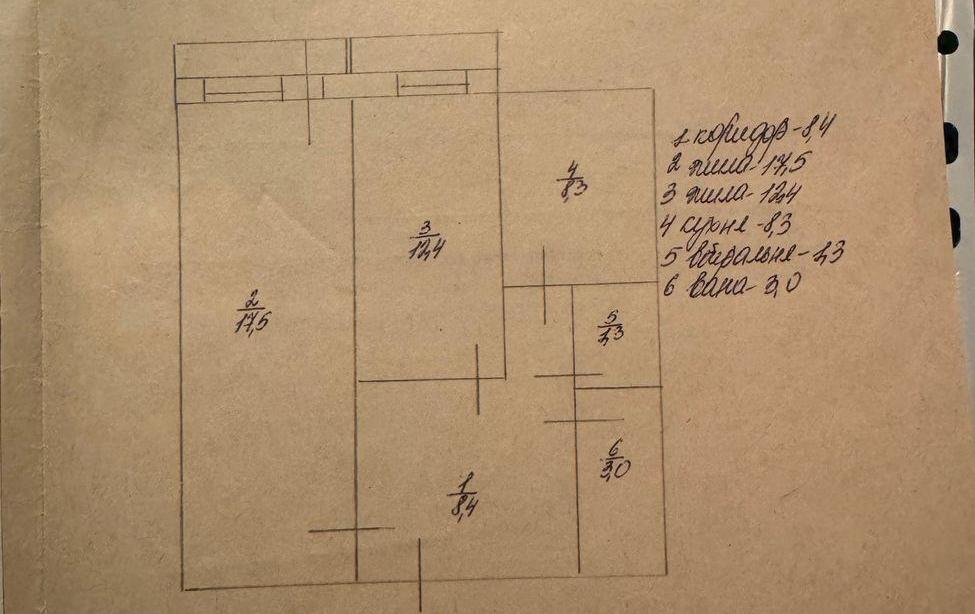 4
8,3
3
12,4
2
17,5
5
1,3
6
3,0
1
8,4
1 коридор-8,4
2 жила-17,5
3 жила-12,4
4 кухня-8,3
5 вбиральня-1,3
6 вана-3,0